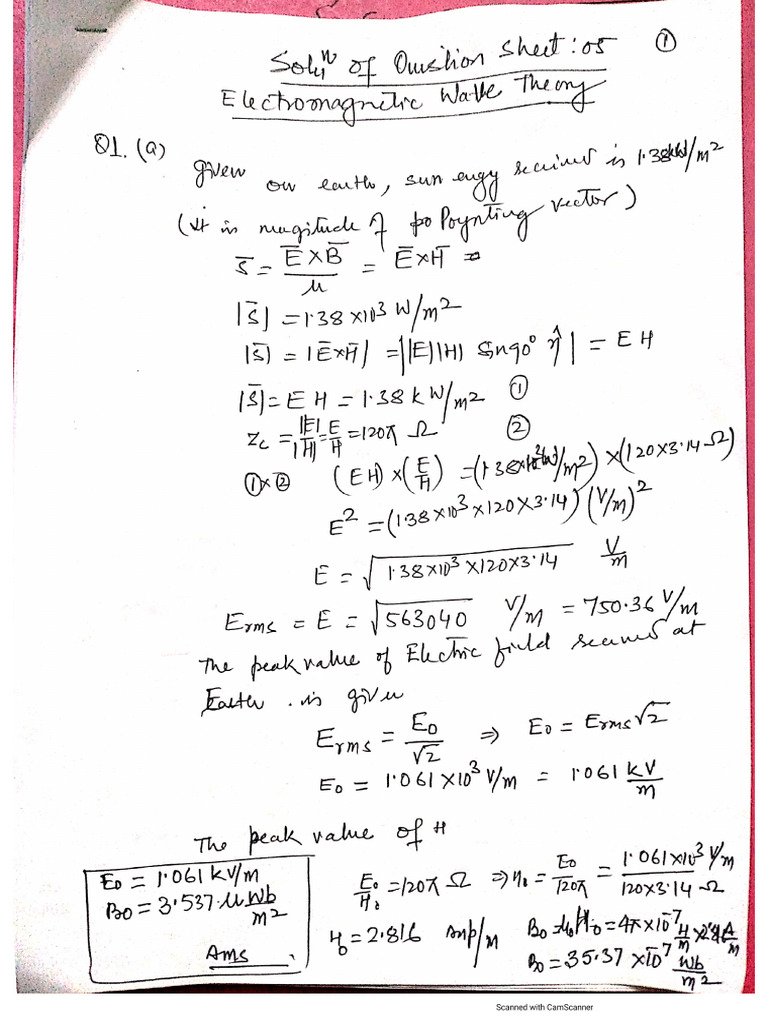 Solⁿ of Question Sheet: 05 ①
Electromagnetic Wave Theory
Q1. (a)
given on earth, sun engy received is 1.38kW/m²
(it is magitude of Poynting vector)
S̄ = Ē×B̄/μ = Ē×H̄ =
|S̄| = 1.38 ×10³ W/m²
|S̄| = |Ē×H̄| = ||E||H| Sin90° η̂| = E H
|S̄| = E H = 1.38 k W/m² ①
Zc = |E|/|H| = E/H = 120π Ω ②
①×② (EH) × (E/H) = (1.38×10³W/m²) × (120×3.14 Ω)
E² = (1.38×10³×120×3.14) (V/m)²
E = √(1.38×10³×120×3.14) V/m
Erms = E = √563040 V/m = 750.36 V/m
The peak value of Electric field received at
Earth . is given
Erms = E0/√2 ⇒ E0 = Erms√2
E0 = 1.061×10³ V/m = 1.061 kV/m
The peak value of H
E0/H0 = 120π Ω ⇒ H0 = E0/120π = 1.061×10³ V/m / 120×3.14 Ω
H0 = 2.816 Amp/m B0 = μ0H0 = 4π×10⁻⁷ H/m × A/m
B0 = 35.37 ×10⁻⁷ Wb/m²
E0 = 1.061 kV/m
B0 = 3.537 μ Wb/m²
Ams
Scanned with CamScanner